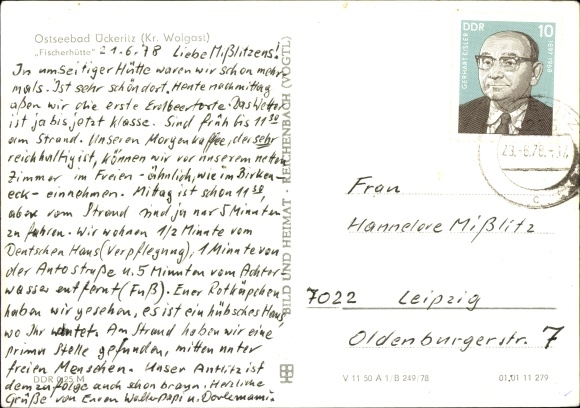 Ostseebad Ückeritz (Kr. Wolgast)
„Fischerhütte"
21.6.78 Liebe Mißlitzens!
In umseitiger Hütte waren wir schon mehr-
mals. Ist sehr schön dort. Heute nachmittag
aßen wir die erste Erdbeertorte. Das Wetter
ist ja bis jetzt klasse. Sind früh bis 11 30
am Strand. Unseren Morgenkaffee, der sehr
reichhaltig ist, können wir vor unserem netten
Zimmer im Freien - ähnlich, wie im Birken-
eck - einnehmen. Mittag ist schon 11 50,
aber vom Strand sind ja nur 5 Minuten
zu fahren. Wir wohnen 1/2 Minute vom
Deutschen Haus (Verpflegung), 1 Minute von
der Autostraße u. 5 Minuten vom Achter-
wasser entfernt (Fuß). Euer Rotkäppchen
haben wir gesehen, es ist ein hübsches Haus,
wo Ihr Am Strand haben wir eine
prima Stelle gefunden, mitten unter
freien Menschen. Unser Antlitz ist
demzufolge auch schon braun. Herzliche
Grüße von Euren Walterpapi u. Dorlemami.
DDR 0,25 M
BILD UND HEIMAT · REICHENBACH (VOGTL)
DDR 10
GERHART EISLER 1897-1968
23.-6.78.-
c
Frau
Hannelore Mißlitz
7022 Leipzig
Oldenburgerstr. 7
V 11 50 A 1/B 249/78 01 01 11 279